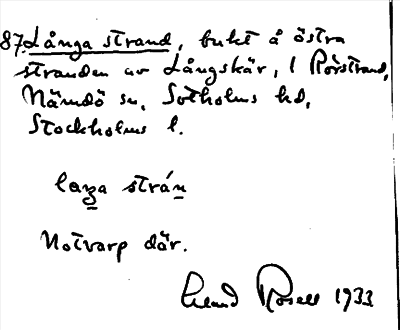 87. Långa strand, bukt å östra
stranden av Långskär, 1 Rörstrand,
Nämdö sn, Sotholms hd,
Stockholms l.
laŋa strán
Notvarp där.
Rosell 1933